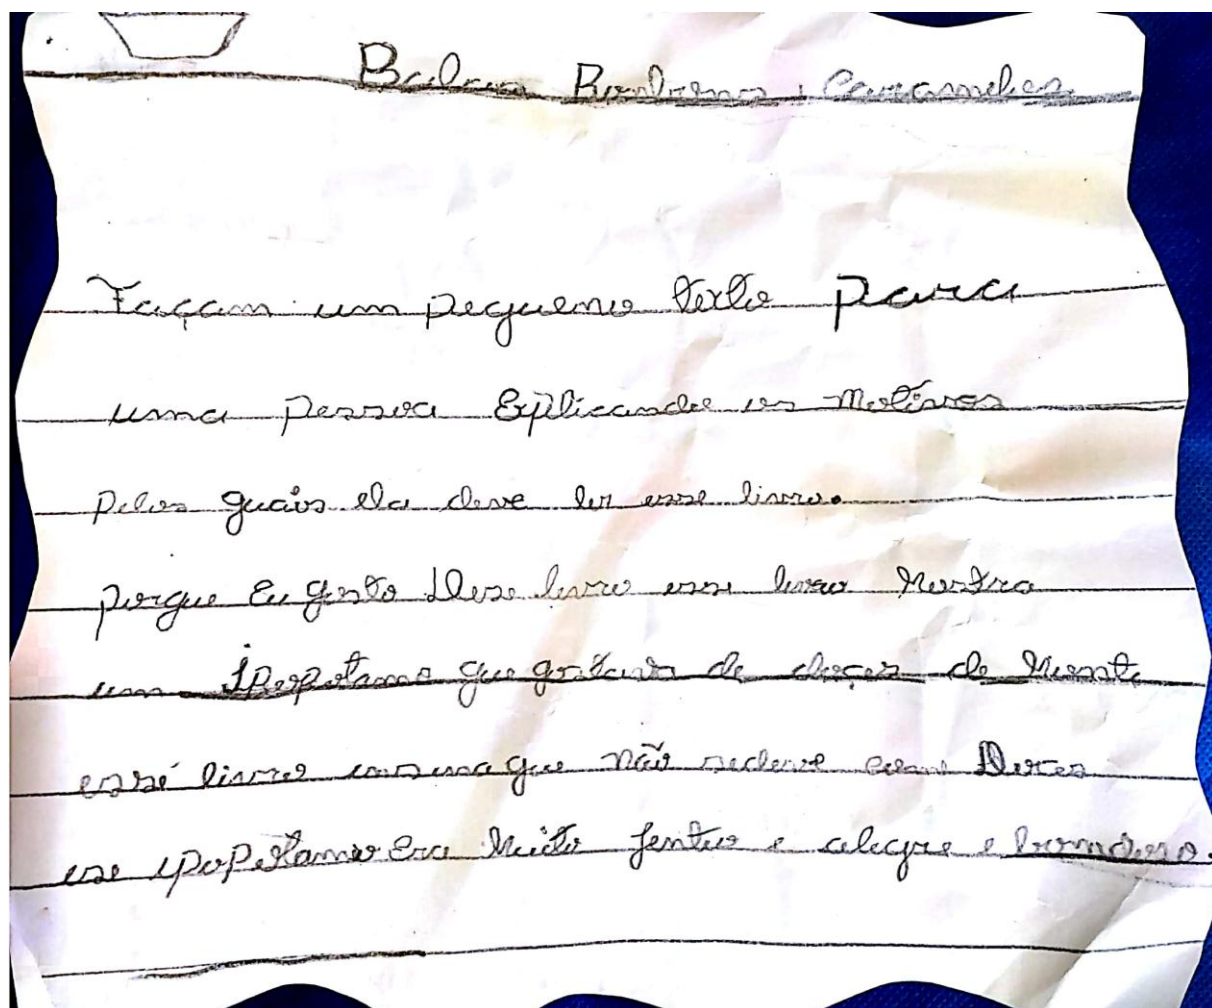 Balas Bombons, Caramelos
Façam um pequeno texto para
uma pessoa Explicando os Motivos
pelos quais ela deve ler esse livro.
porque Eu gosto Desse livro esse livro Mostra
um ipopotamo que gostava de doces de Monte
essé livro ensina que não sedeve come Doces
ese ipopotamo Era Muito jentio e alegre e bomdoso.